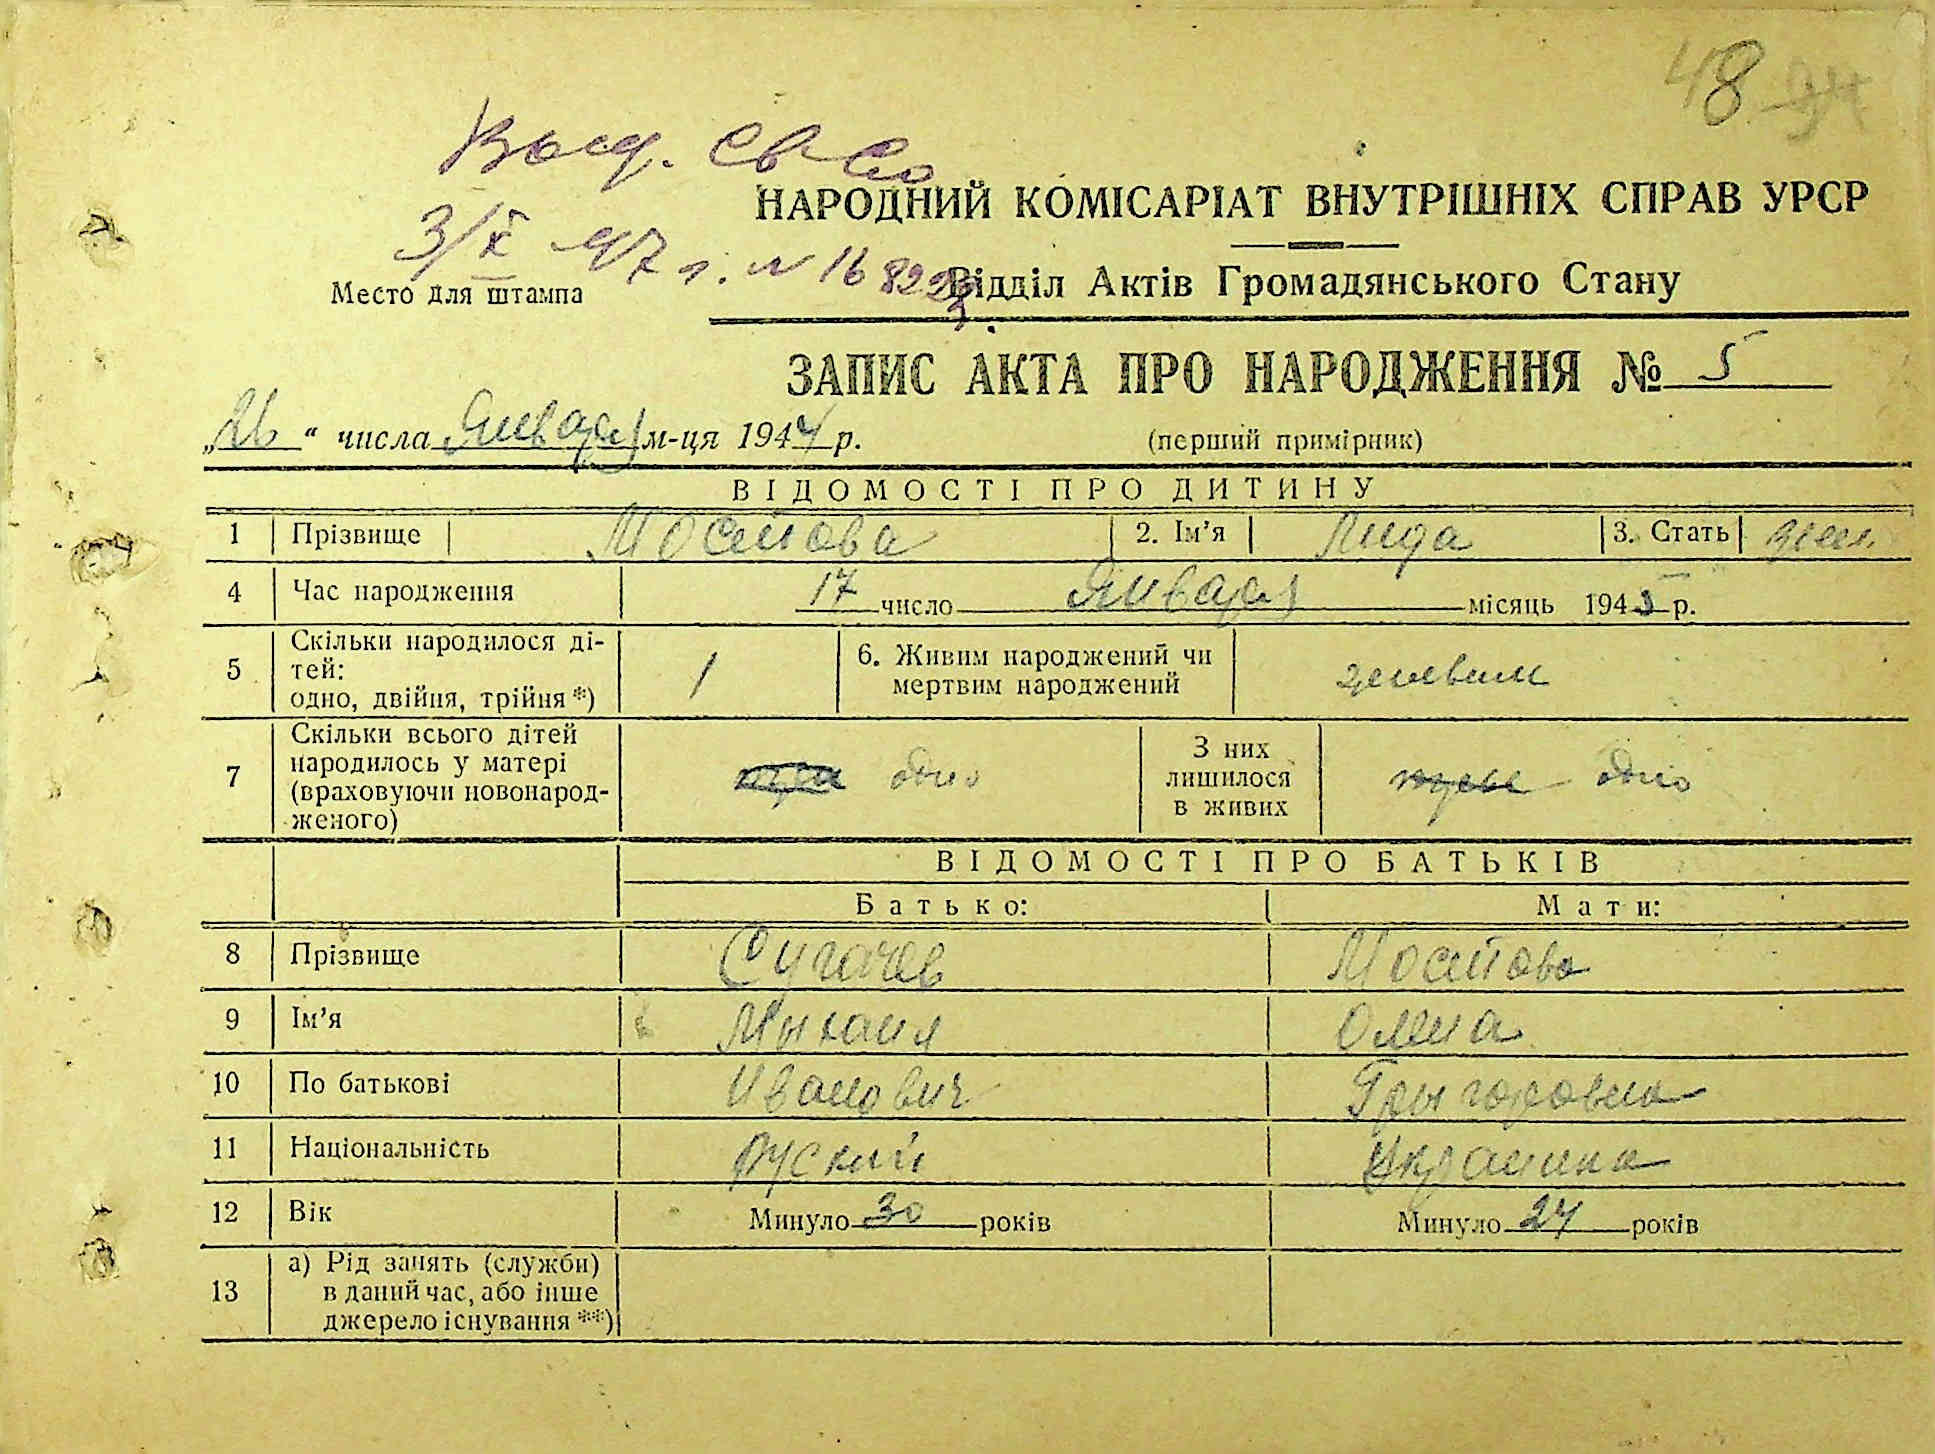 48
Выд. св-во
3/X 47 г. № 168223
НАРОДНИЙ КОМІСАРІАТ ВНУТРІШНІХ СПРАВ УРСР
Место для штампа
Відділ Актів Громадянського Стану
ЗАПИС АКТА ПРО НАРОДЖЕННЯ № 5
„26“ числа Января м-ця 1944 р. (перший примірник)
ВІДОМОСТІ ПРО ДИТИНУ
1 Прізвище Мостова 2. Ім’я Лида 3. Стать жен.
4 Час народження 17 число Января місяць 194 р.
5 Скільки народилося ді-
тей:
одно, двійня, трійня *) 1 6. Живим народжений чи
мертвим народжений живым
7 Скільки всього дітей
народилось у матері
(враховуючи новонарод-
женого) одно З них
лишилося
в живих одно
ВІДОМОСТІ ПРО БАТЬКІВ
Батько: Мати:
8 Прізвище Сугачев Мостова
9 Ім’я Мыхаил Олена
10 По батькові Иванович Грыгоровна
11 Національність Руский Украинка
12 Вік Минуло 30 років Минуло 24 років
13 а) Рід занять (служби)
в даний час, або інше
джерело існування **)